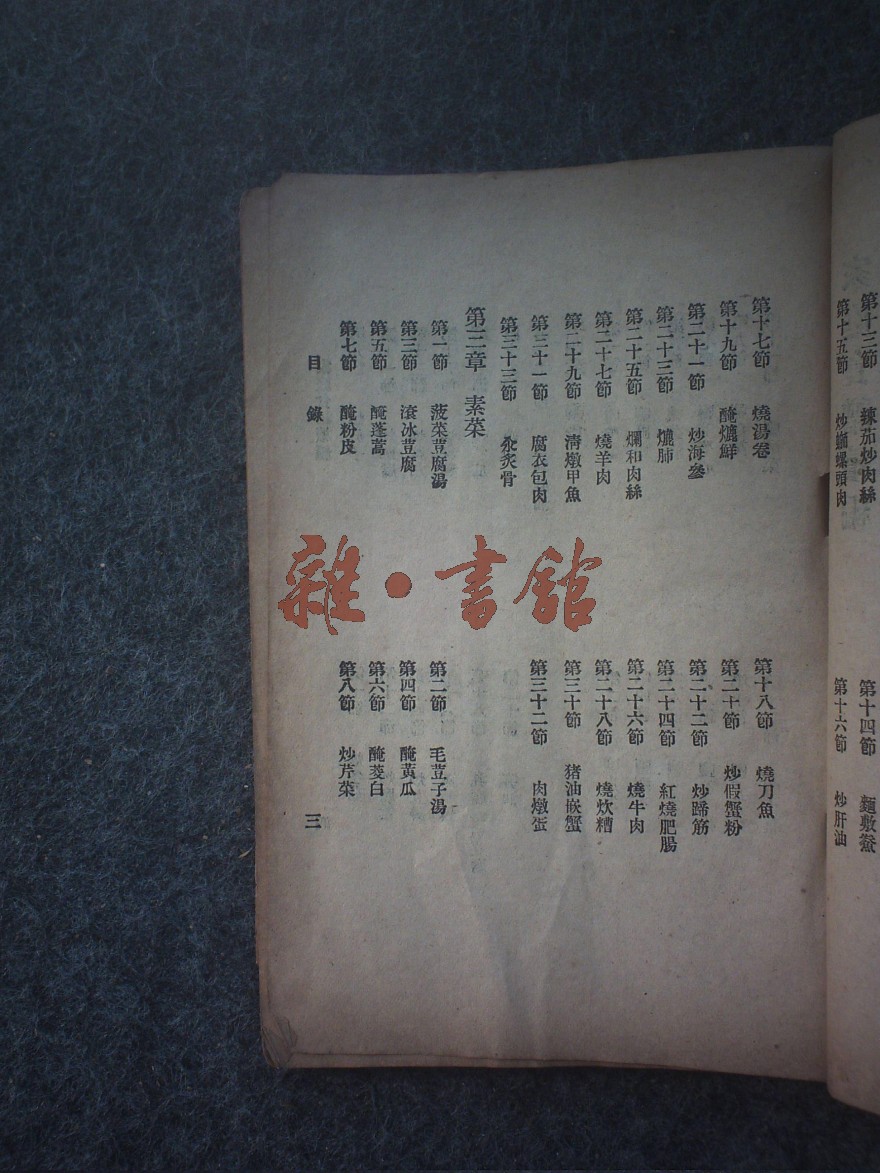 第十三節　辣茄炒肉絲
第十四節　麵敷鯗
第十五節　炒螄螺頭肉
第十六節　炒肝油
第十七節　燒湯卷
第十八節　燒刀魚
第十九節　醃爊鮮
第二十節　炒假蟹粉
第二十一節　炒海參
第二十二節　炒蹄筋
第二十三節　爊肺
第二十四節　紅燒肥腸
第二十五節　爛和肉絲
第二十六節　燒牛肉
第二十七節　燒羊肉
第二十八節　燒炊糟
第二十九節　清燉甲魚
第三十節　猪油嵌蟹
第三十一節　腐衣包肉
第三十二節　肉燉蛋
第三十三節　汆炙骨
第三章　素菜
第一節　菠菜荳腐湯
第二節　毛荳子湯
第三節　滾冰荳腐
第四節　醃黃瓜
第五節　醃蓬蒿
第六節　醃茭白
第七節　醃粉皮
第八節　炒芹菜
目錄　三
雜·書館